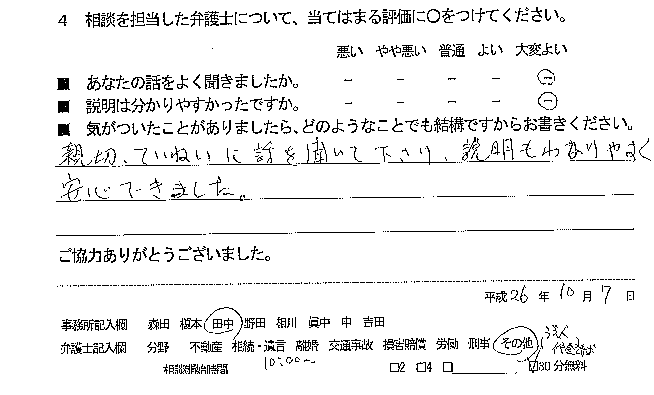 4 相談を担当した弁護士について、当てはまる評価に○をつけてください。
悪い やや悪い 普通 よい 大変よい
■ あなたの話をよく聞きましたか。 － － － － －
■ 説明は分かりやすかったですか。 － － － － －
■ 気がついたことがありましたら、どのようなことでも結構ですからお書きください。
親切、ていねいに話を聞いて下さり、説明もわかりやすく
安心できました。
ご協力ありがとうございました。
平成 26 年 10 月 7 日
事務所記入欄 森田 榎本 田中 野田 相川 眞中 中 吉田
弁護士記入欄 分野 不動産 相続・遺言 離婚 交通事故 損害賠償 労働 刑事 その他
相談開始時間 10:00～ □2 □4 □ ☑30分無料